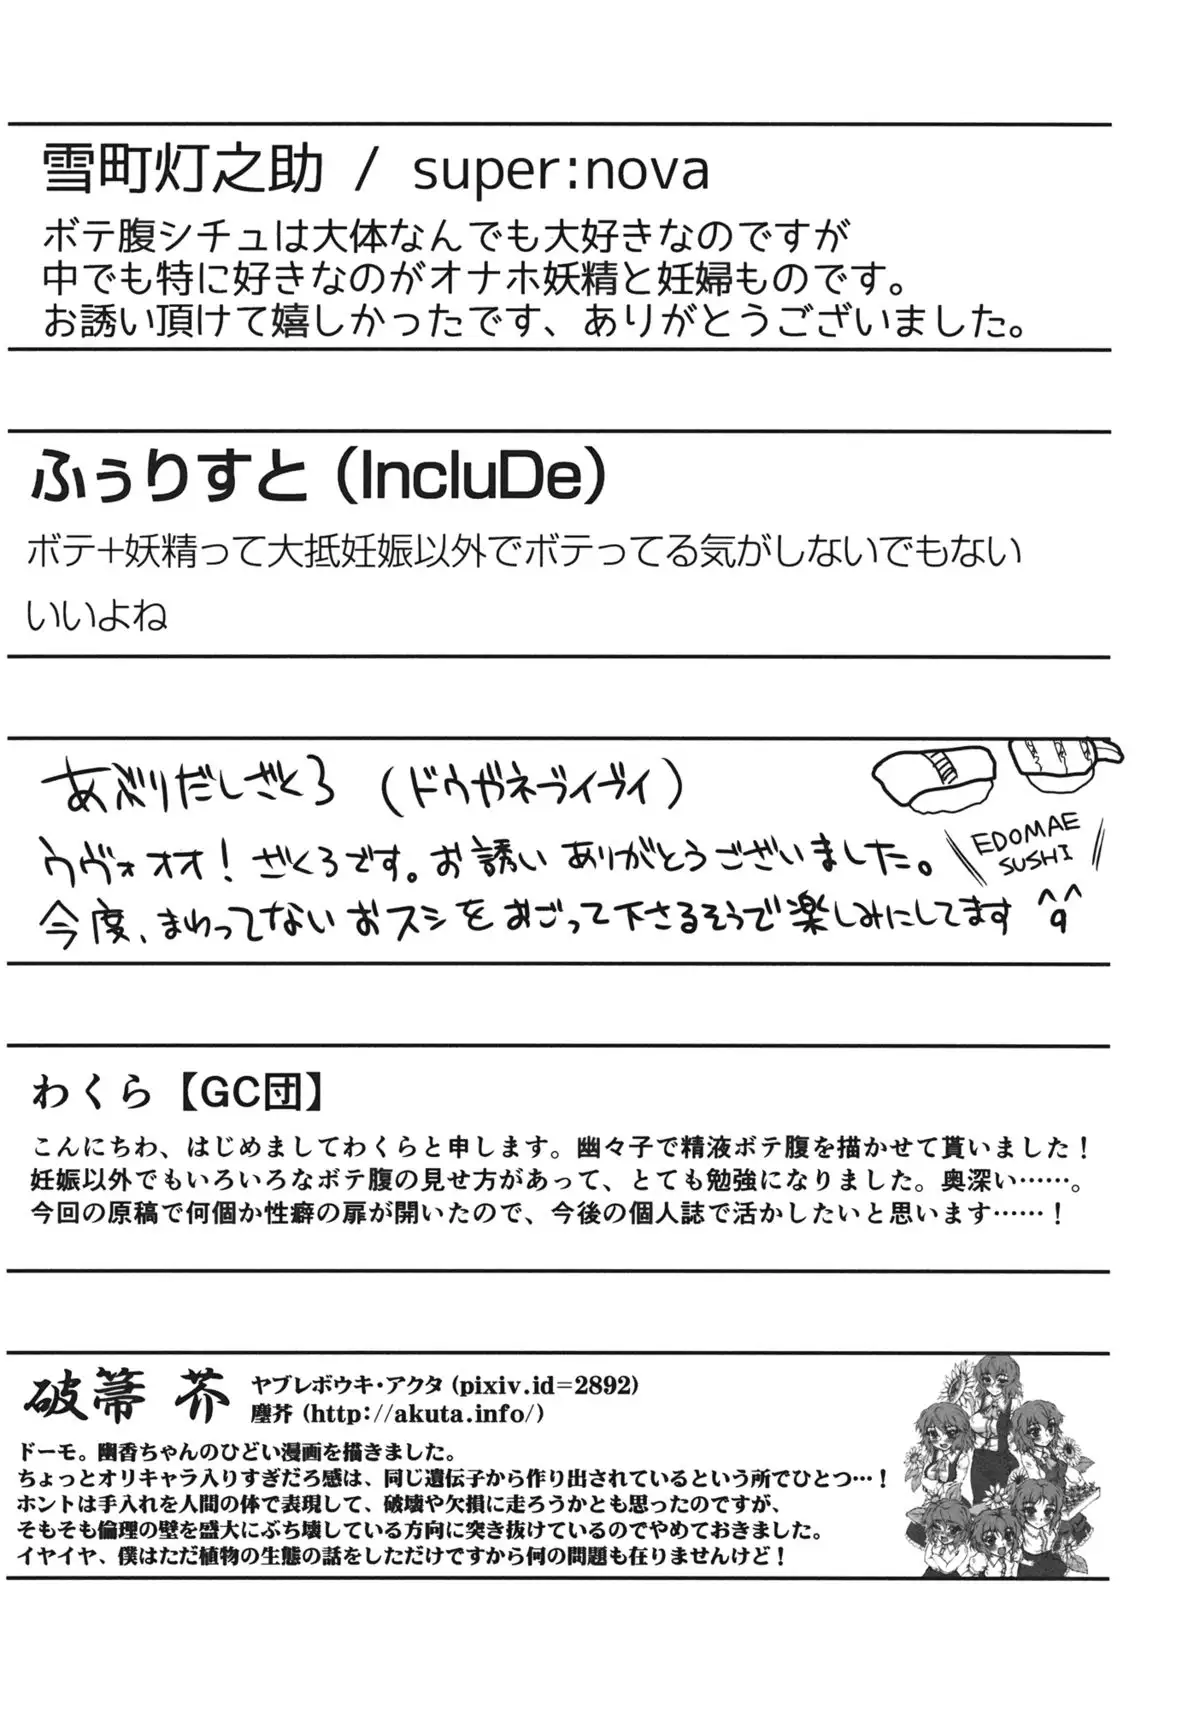 雪町灯之助 / super:nova
ボテ腹シチュは大体なんでも大好きなのですが
中でも特に好きなのがオナホ妖精と妊婦ものです。
お誘い頂けて嬉しかったです、ありがとうございました。
ふぅりすと（IncluDe）
ボテ+妖精って大抵妊娠以外でボテってる気がしないでもない
いいよね
あぶりだしざくろ（ドウガネブイブイ）
ウヴォオオ！ざくろです。お誘いありがとうございました。
EDOMAE
SUSHI
今度、まわってないおスシをおごって下さるそうで楽しみにしてます ^q^
わくら【GC団】
こんにちわ、はじめましてわくらと申します。幽々子で精液ボテ腹を描かせて貰いました！
妊娠以外でもいろいろなボテ腹の見せ方があって、とても勉強になりました。奥深い……。
今回の原稿で何個か性癖の扉が開いたので、今後の個人誌で活かしたいと思います……！
破箒 芥 ヤブレボウキ・アクタ (pixiv.id=2892)
塵芥 (http://akuta.info/)
ドーモ。幽香ちゃんのひどい漫画を描きました。
ちょっとオリキャラ入りすぎだろ感は、同じ遺伝子から作り出されているという所でひとつ…！
ホントは手入れを人間の体で表現して、破壊や欠損に走ろうかとも思ったのですが、
そもそも倫理の壁を盛大にぶち壊している方向に突き抜けているのでやめておきました。
イヤイヤ、僕はただ植物の生態の話をしただけですから何の問題も在りませんけど！